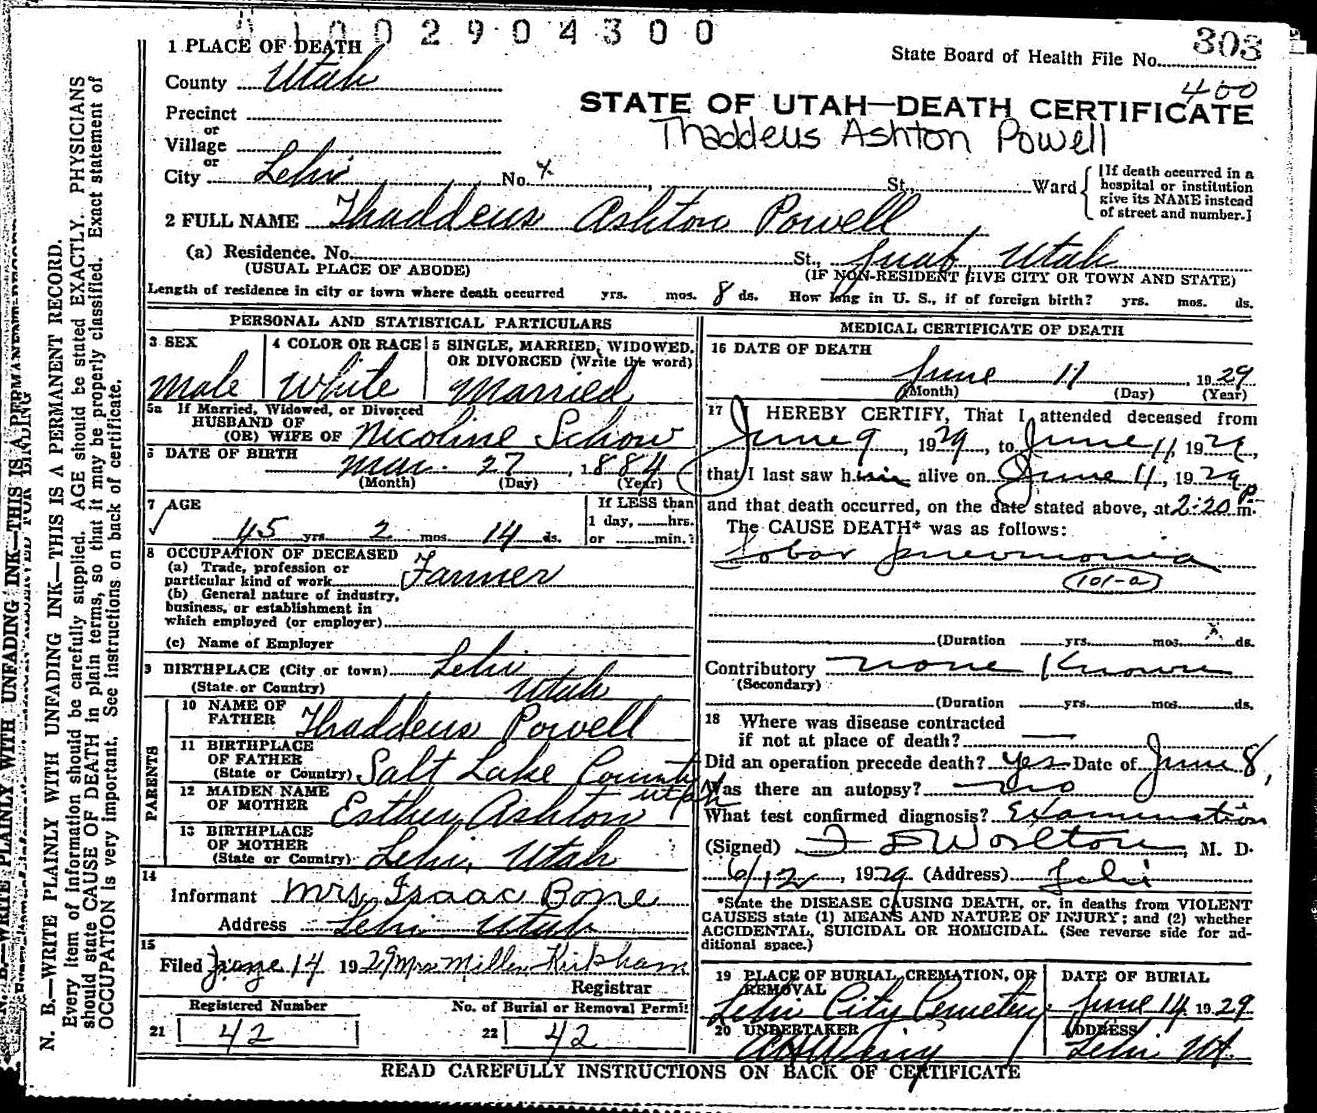 0 1 0 0 2 9 0 4 3 0 0
1 PLACE OF DEATH
State Board of Health File No. 303
County Utah
400
STATE OF UTAH—DEATH CERTIFICATE
Precinct
or
Thaddeus Ashton Powell
Village
or
City Lehi No. x St., Ward
[If death occurred in a
hospital or institution
give its NAME instead
of street and number.]
2 FULL NAME Thaddeus Ashton Powell
(a) Residence. No. St., Juab, Utah
(USUAL PLACE OF ABODE) (IF NON-RESIDENT GIVE CITY OR TOWN AND STATE)
Length of residence in city or town where death occurred yrs. mos. 8 ds. How long in U. S., if of foreign birth? yrs. mos. ds.
PERSONAL AND STATISTICAL PARTICULARS
3 SEX
Male
4 COLOR OR RACE
White
5 SINGLE, MARRIED, WIDOWED,
OR DIVORCED (Write the word)
Married
5a If Married, Widowed, or Divorced
HUSBAND OF
(OR) WIFE OF Nicoline Schow
6 DATE OF BIRTH
Mar. 27, 1884
(Month) (Day) (Year)
7 AGE
45 yrs. 2 mos. 14 ds.
If LESS than
1 day, hrs.
or min.?
8 OCCUPATION OF DECEASED
(a) Trade, profession or
particular kind of work Farmer
(b) General nature of industry,
business, or establishment in
which employed (or employer)
(c) Name of Employer
9 BIRTHPLACE (City or town) Lehi
(State or Country) Utah
PARENTS
10 NAME OF
FATHER Thaddeus Powell
11 BIRTHPLACE
OF FATHER
(State or Country) Salt Lake County
Utah
12 MAIDEN NAME
OF MOTHER Esther Ashton
13 BIRTHPLACE
OF MOTHER
(State or Country) Lehi, Utah
14
Informant Mrs. Isaac Bone
Address Lehi Utah
15
Filed June 14 1929 Mrs Millen Kirkham
Registrar
Registered Number
21 42
No. of Burial or Removal Permit
22 42
MEDICAL CERTIFICATE OF DEATH
16 DATE OF DEATH
June 11, 1929
(Month) (Day) (Year)
17 I HEREBY CERTIFY, That I attended deceased from
June 9, 1929, to June 11, 1929,
that I last saw him alive on June 11, 1929
and that death occurred, on the date stated above, at 2:20 P m.
The CAUSE DEATH* was as follows:
Lobar pneumonia
101-a
(Duration yrs. mos. x ds.
Contributory none Known
(Secondary)
(Duration yrs. mos. ds.
18 Where was disease contracted
if not at place of death? —
Did an operation precede death? Yes Date of June 8,
Was there an autopsy? no
What test confirmed diagnosis? Examination
(Signed) Worlton, M. D.
6/12, 1929 (Address) Lehi
*State the DISEASE CAUSING DEATH, or, in deaths from VIOLENT
CAUSES state (1) MEANS AND NATURE OF INJURY; and (2) whether
ACCIDENTAL, SUICIDAL OR HOMICIDAL. (See reverse side for ad-
ditional space.)
19 PLACE OF BURIAL, CREMATION, OR
REMOVAL
Lehi City Cemetery
DATE OF BURIAL
June 14 1929
20 UNDERTAKER
ADDRESS
Lehi Ut.
READ CAREFULLY INSTRUCTIONS ON BACK OF CERTIFICATE
N. B.—WRITE PLAINLY WITH UNFADING INK—THIS IS A PERMANENT RECORD.
Every item of information should be carefully supplied. AGE should be stated EXACTLY. PHYSICIANS
should state CAUSE OF DEATH in plain terms, so that it may be properly classified. Exact statement of
OCCUPATION is very important. See instructions on back of certificate.